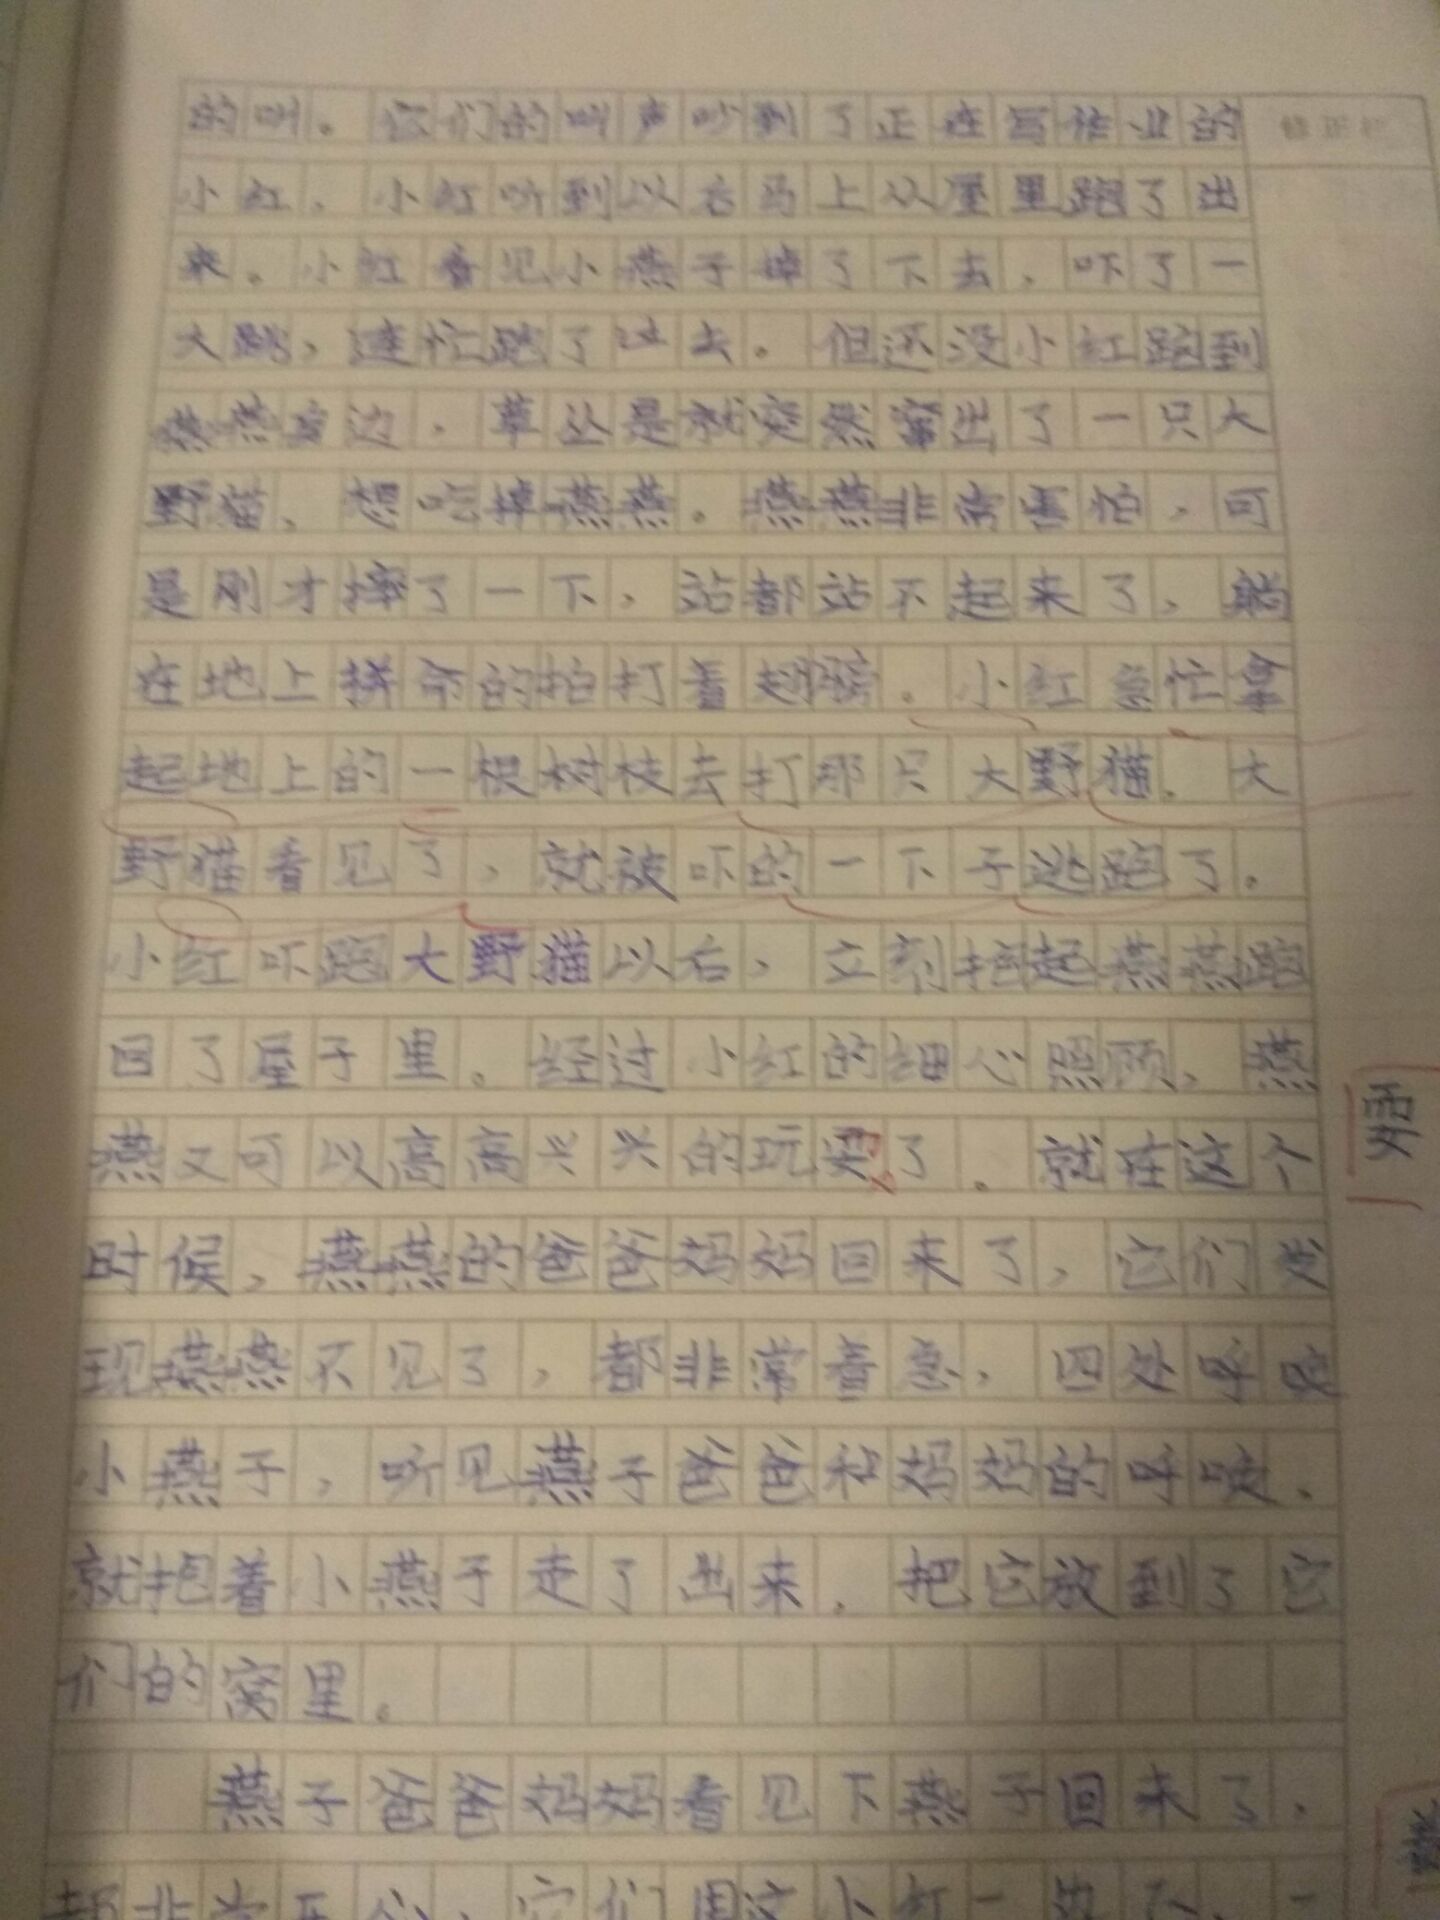 的叫。它们的叫声吵到了正在写作业的
修正栏
小红，小红听到以后马上从屋里跑了出
来。小红看见小燕子掉了下去，吓了一
大跳，连忙跑了过去。但还没小红跑到
燕燕身边，草丛里就突然窜出了一只大
野猫，想吃掉燕燕。燕燕非常害怕，可
是刚才摔了一下，站都站不起来了，躺
在地上拼命的拍打着翅膀。小红急忙拿
起地上的一根树枝去打那只大野猫。大
野猫看见了，就被吓的一下子逃跑了。
小红吓跑大野猫以后，立刻抱起燕燕跑
回了屋子里。经过小红的细心照顾，燕
燕又可以高高兴兴的玩耍了。就在这个
耍
时候，燕燕的爸爸妈妈回来了，它们发
现燕燕不见了，都非常着急，四处呼唤
小燕子，听见燕子爸爸和妈妈的呼唤，
就抱着小燕子走了出来，把它放到了它
们的窝里。
燕子爸爸妈妈看见下燕子回来了，
都非常开心，它们围这小红一